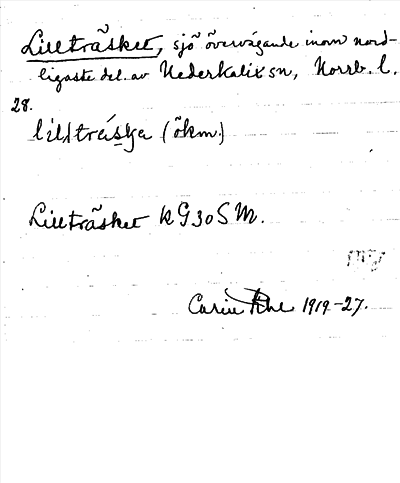 Lillträsket, sjö övervägande inom nord-
ligaste del. av Nederkalix sn, Norrb. l.
28.
(ökm.)
Lillträsket k G 30 S M.
Carin 1919-27.